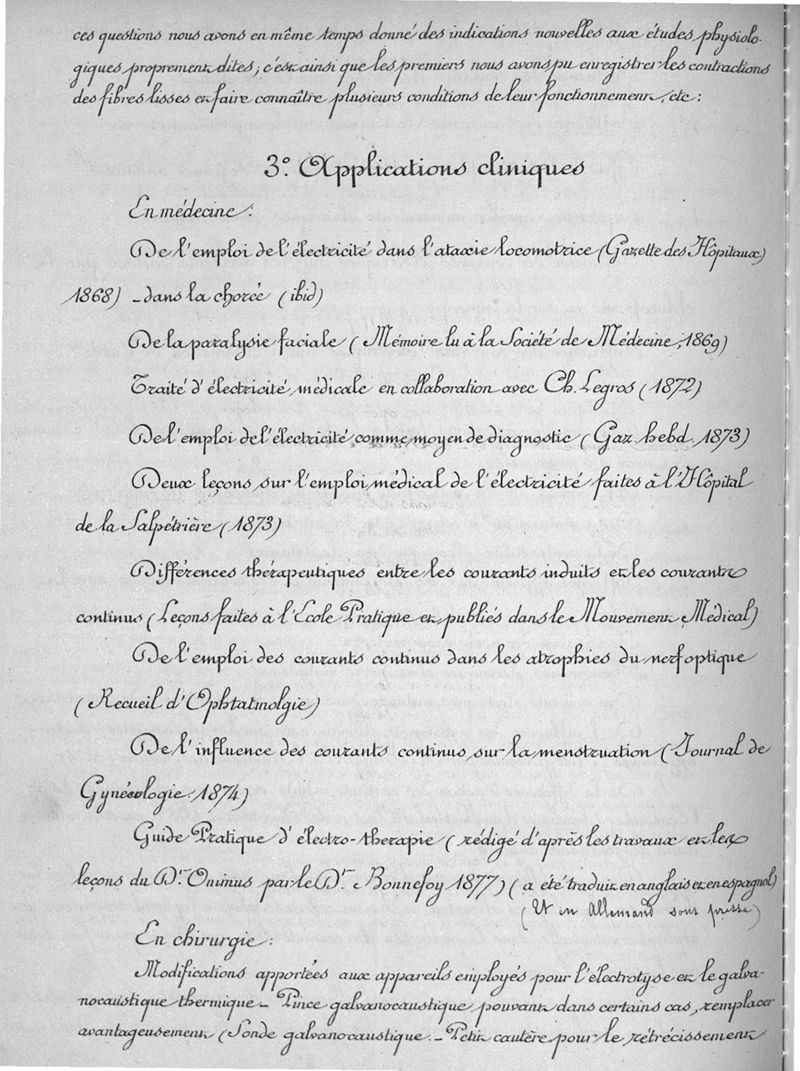 ces questions nous avons en même temps donné des indications nouvelles aux études physiolo-
giques proprement dites; c'est ainsi que les premiers nous avons pu enregistrer les contractions
des fibres lisses et faire connaître plusieurs conditions de leur fonctionnement, etc:
3.° Applications cliniques
En médecine:
De l'emploi de l'électricité dans l'ataxie locomotrice (Gazette des Hôpitaux)
1868) _ dans la chorée (ibid)
De la paralysie faciale (Mémoire lu à la Société de Médecine, 1869)
Traité d'électricité médicale en collaboration avec Ch. Legros (1872)
De l'emploi de l'électricité comme moyen de diagnostic (Gaz. hebd. 1873)
Deux leçons sur l'emploi médical de l'électricité faites à l'Hôpital
de la Salpêtrière (1873)
Différences thérapeutiques entre les courants induits et les courants
continus (Leçons faites à l'Ecole Pratique et publiés dans le Mouvement Médical)
De l'emploi des courants continus dans les atrophies du nerf optique
(Recueil d'Ophtatmolgie)
De l'influence des courants continus sur la menstruation (Journal de
Gynécologie. 1874)
Guide Pratique d'électro-therapie (rédigé d'après les travaux et les
leçons du Dr Onimus par le Dr Bonnefoy 1877) (a été traduit en anglais et en espagnol)
(Et en Allemand sous presse)
En chirurgie:
Modifications apportées aux appareils employés pour l'électrotyse et le galva-
nocaustique thermique _ Pince galvanocaustique, pouvant dans certains cas, remplacer
avantageusement (Sonde galvanocaustique. _ Petit cautère pour le rétrécissement